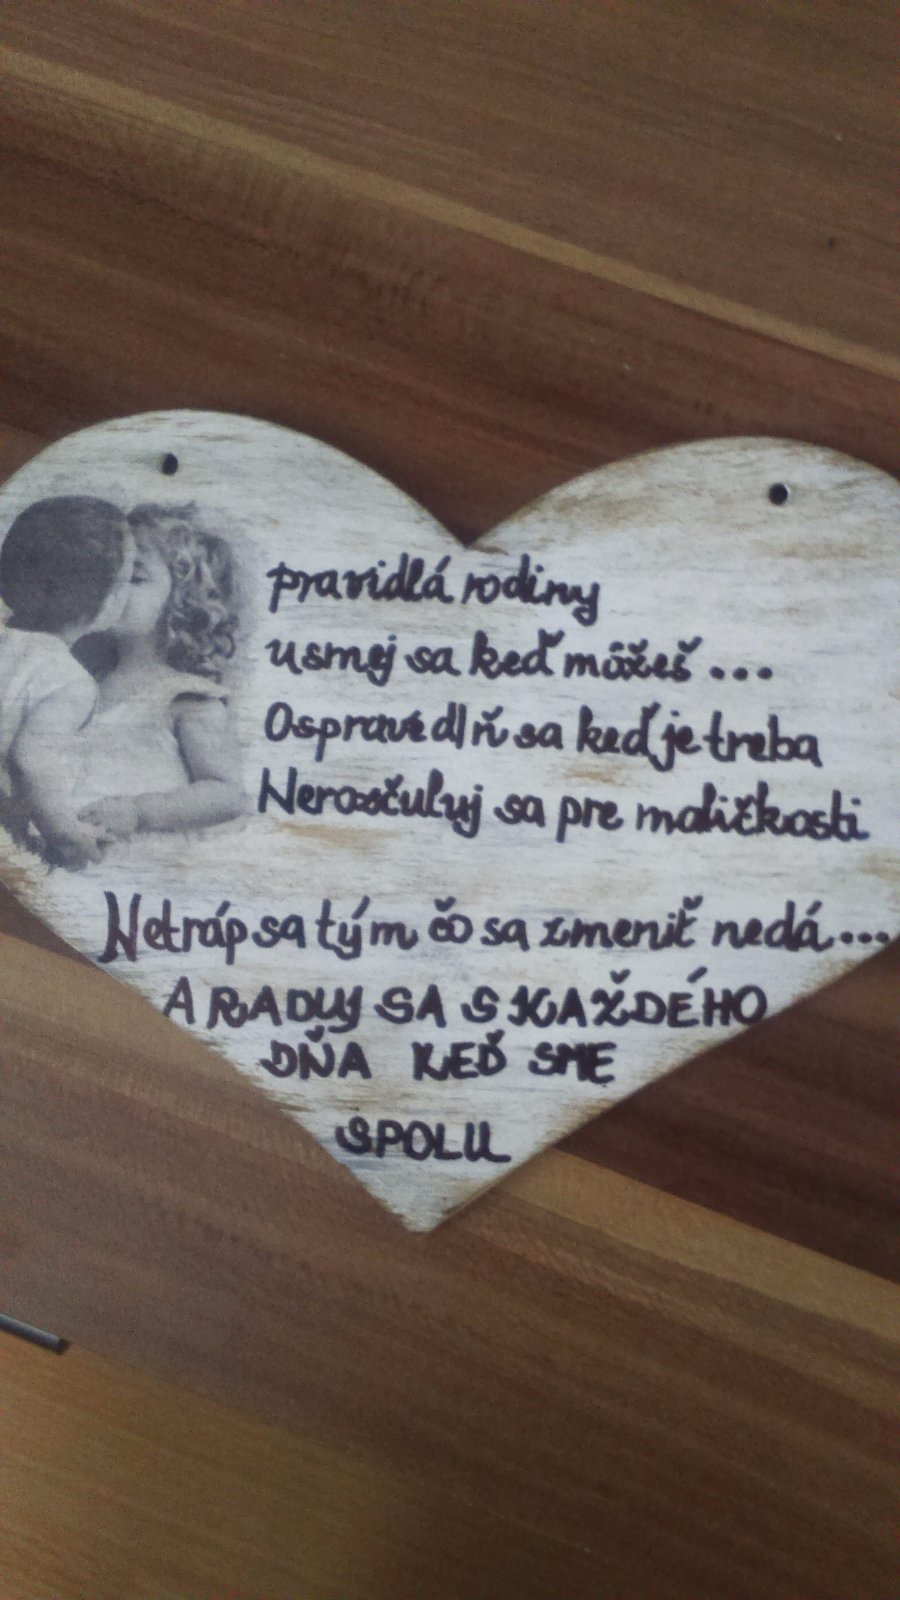 pravidlá rodiny
usmej sa keď môžeš...
Ospravedlň sa keď je treba
Nerozčuluj sa pre maličkosti
Netráp sa tým čo sa zmeniť nedá...
A RADUJ SA S KAŽDÉHO
DŇA KEĎ SME
SPOLU